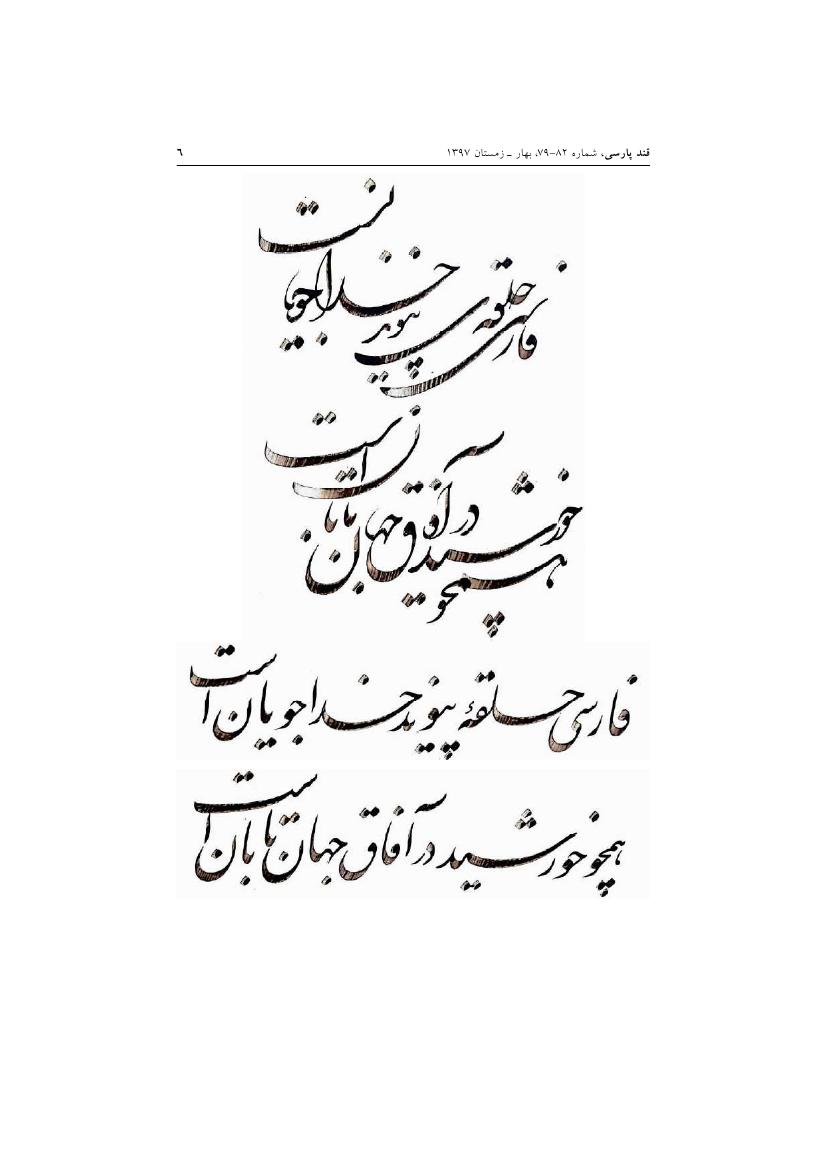 قند پارسی، شماره ۸۲-۷۹، بهار ـ زمستان ۱۳۹۷ ۶
فارسی حلقه‌ی پیوند خداجویانست
همچو خورشید در آفاق جهان تابان است
فارسی حلقهٔ پیوند خداجویان است
همچو خورشید در آفاق جهان تابان است